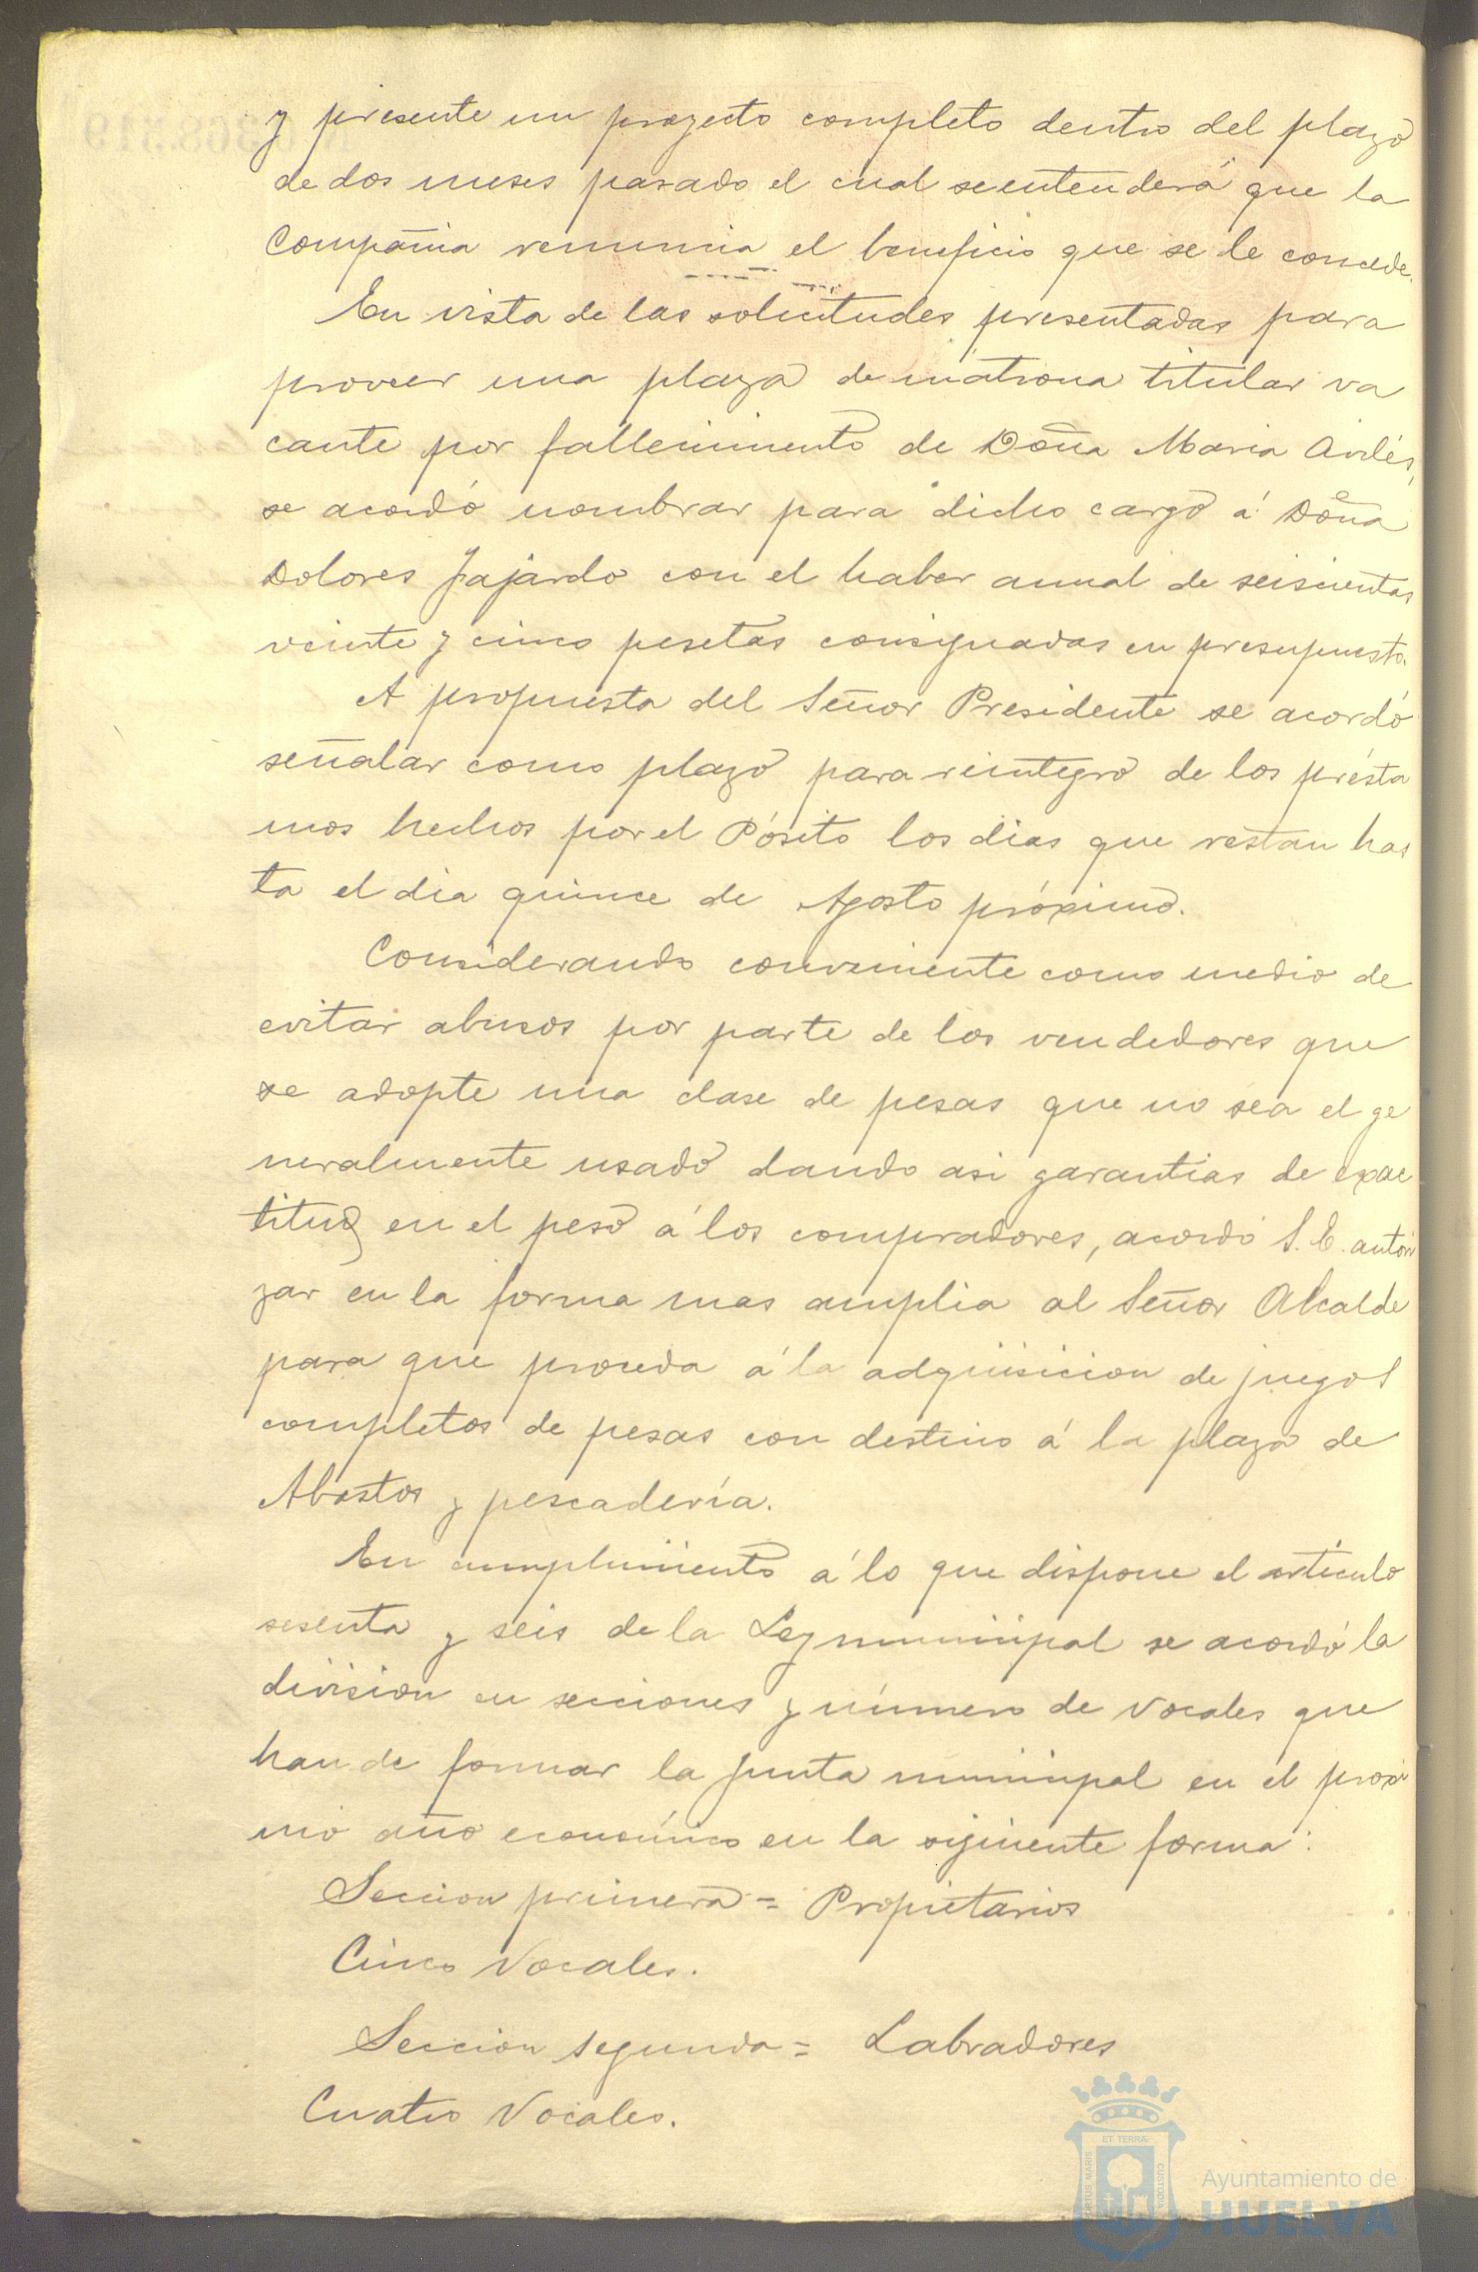 y presente un proyecto completo dentro del plazo
de dos meses pasado el cual se entenderá que la
Compañia renuncia el beneficio que se le concede.
En vista de las solicitudes presentadas para
proveer una plaza de matrona titular va
cante por fallecimiento de Doña Maria Avilés,
se acordó nombrar para dicho cargo á Doña
Dolores Fajardo con el haber anual de seiscientas
veinte y cinco pesetas consignadas en presupuesto.
A propuesta del Señor Presidente se acordó
señalar como plazo para reintegro de los présta
mos hechos por el Pósito los dias que restan has
ta el dia quince de Agosto próximo.
Considerando conveniente como medio de
evitar abusos por parte de los vendedores que
se adopte una clase de pesas que no sea el ge
neralmente usado dando asi garantias de exac
titud en el peso á los compradores, acordó S. E. autori
zar en la forma mas amplia al Señor Alcalde
para que proceda á la adquisicion de juegos
completos de pesas con destino á la plaza de
Abastos y pescadería.
En cumplimiento á lo que dispone el artículo
sesenta y seis de la Ley municipal se acordó la
division en secciones y número de Vocales que
han de formar la Junta municipal en el proxi
mo año económico en la siguiente forma:
Seccion primera = Propietarios
Cinco Vocales.
Seccion segunda = Labradores
Cuatro Vocales.
ET TERRÆ
PORTUS MARIS
CUSTODIA
Ayuntamiento de
HUELVA